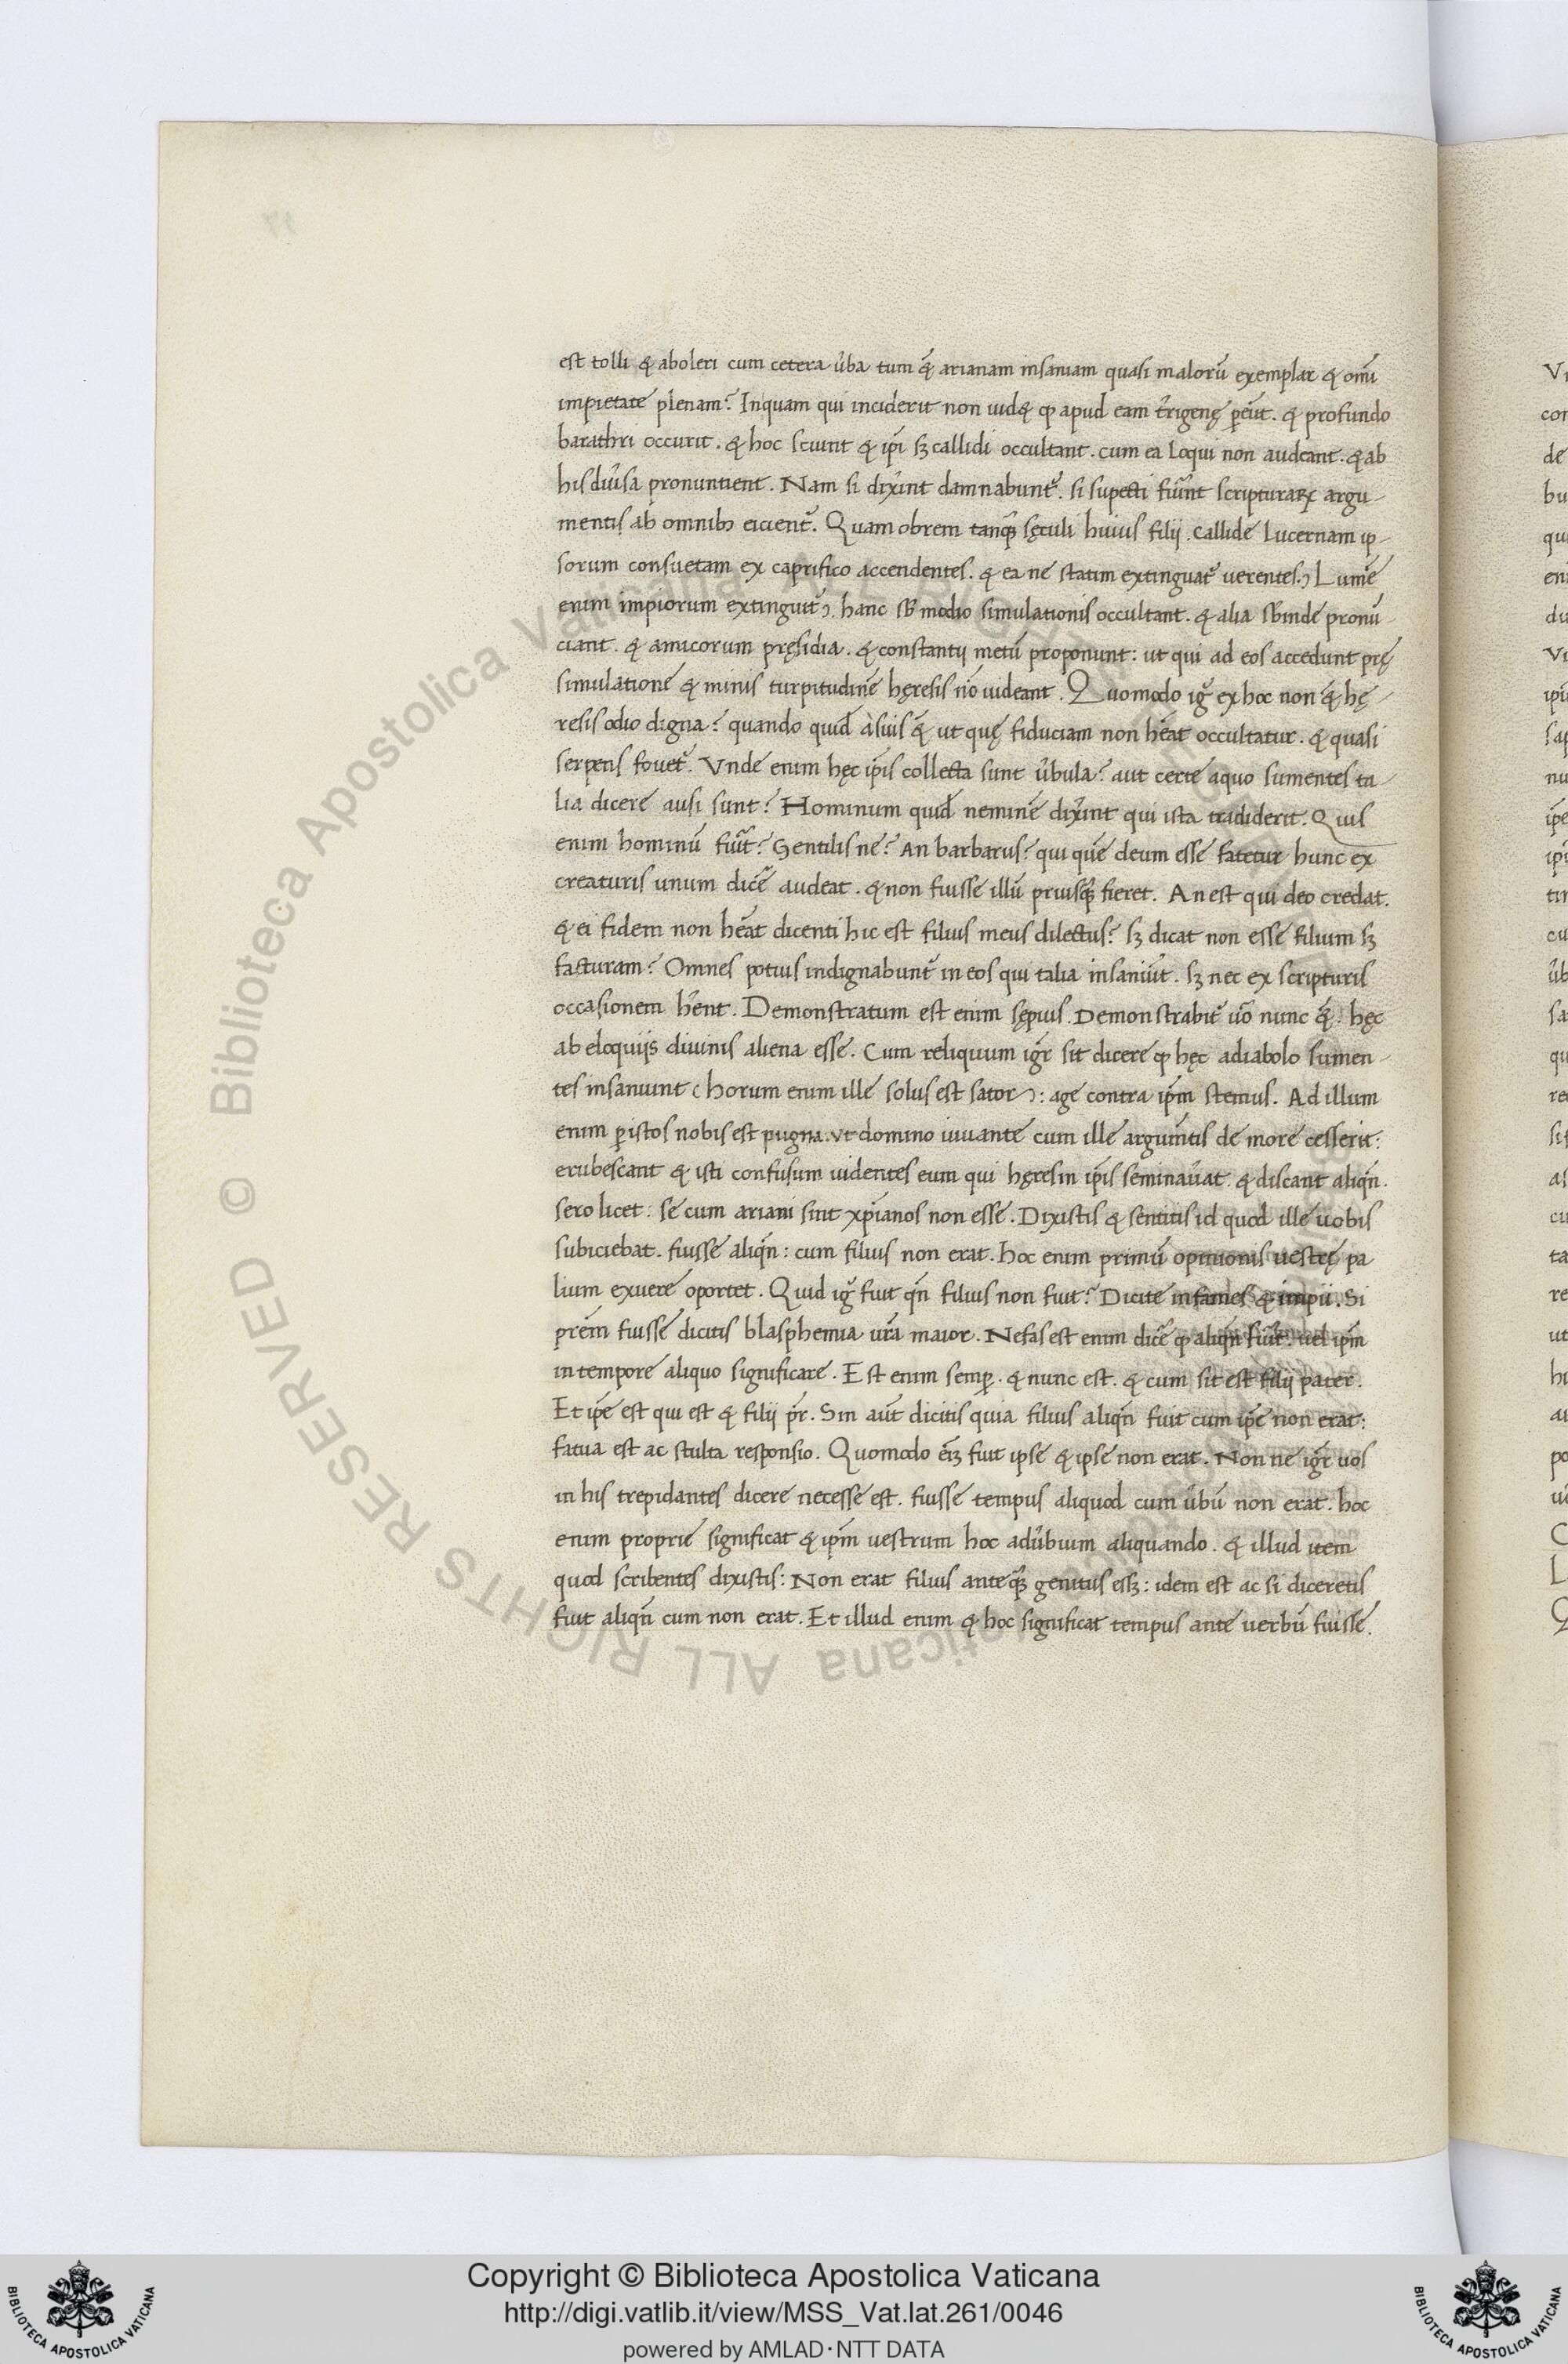 est tolli & aboleri cum cetera ũba tum q̃ arianam insaniam quasi malorũ exemplar & om̃i
impietate plenam? Inquam qui inciderit non uid& ꝙ apud eam t̃rigenę peũt. & profundo
barathri occurit. & hoc sciunt & ip̃i sꝫ callidi occultant. cum ea loqui non audeant. & ab
his diũsa pronuntient. Nam si dix̃int damnabunt᷑. si supecti fũnt scripturaꝝ argu-
mentis ab omnibꝫ eicient᷑. Quam obrem tanꝗ̃ sęculi huius filij. callide lucernam ip-
sorum consuetam ex caprifico accendentes. & ea ne statim extinguat᷑ uerentes.) Lumẽ
enim impiorum extinguit᷑). hanc sƀ modio simulationis occultant. & alia sƀinde pronũ-
ciant. & amicorum pręsidia. & constantij metũ proponunt: ut qui ad eos accedunt prę
simulatione & minis turpitudinẽ hęresis nõ uideant. Quomodo ig᷑ ex hoc non q̃ hę-
resis odio digna? quando quid̃ à suis q̃ ut quę fiduciam non hẽat occultatur. & quasi
serpens fouet᷑. Vnde enim hęc ip̃is collecta sunt ũbula? aut certe aquo sumentes ta-
lia dicere ausi sunt? Hominum quid̃ neminẽ dix̃int qui ista tradiderit. Quis
enim hominũ fũit? Gentilis ne? An barbarus? qui quẽ deum esse fatetur hunc ex
creaturis unum dic̃e audeat. & non fuisse illũ priusꝗ̃ fieret. An est qui deo credat.
& ei fidem non hẽat dicenti hic est filius meus dilectus? sꝫ dicat non esse filium sꝫ
facturam? Omnes potius indignabunt᷑ in eos qui talia insaniũt. sꝫ nec ex scripturis
occasionem hñt. Demonstratum est enim sępius. Demonstrabit᷑ uõ nunc q̃ꝫ. hęc
ab eloquijs diuinis aliena esse. Cum reliquum ig̃r sit dicere ꝙ hęc adiabolo sumen-
tes insaniunt (horum enim ille solus est sator): age contra ip̃m stemus. Ad illum
enim ꝑ istos nobis est pugna. vt domino iuuante cum ille argum̃tis de more cesserit:
erubescant & isti confusum uidentes eum qui hęresin ip̃is seminaũat. & discant aliqñ.
sero licet: se cum ariani sint xp̃ianos non esse. Dixistis & sentitis id quod ille uobis
subiciebat. fuisse aliqñ: cum filius non erat. hoc enim primũ opinionis uestrę pa
lium exuere oportet. Quid ig᷑ fuit qñ filius non fuit? Dicite infames & impii. Si
pr̃em fuisse dicitis blasphemia ur̃a maior. Nefas est enim dic̃e ꝙ aliqñ fũit. uel ip̃m
in tempore aliquo significare. Est enim semꝑ. & nunc est. & cum sit est filij pater.
Et ip̃e est qui est & filij pr̃. Sin aũt dicitis quia filius aliqñ fuit cum ip̃e non erat:
fatua est ac stulta responsio. Quomodo eĩꝫ fuit ipse & ipse non erat. Non ne ig̃r uos
in his trepidantes dicere necesse est. fuisse tempus aliquod cum ũbũ non erat. hoc
enim proprie significat & ip̃m uestrum hoc adũbium aliquando. & illud item
quod scribentes dixistis: Non erat filius anteꝗ̃ genitus essꝫ: idem est ac si diceretis
fuit aliqñ cum non erat. Et illud enim & hoc significat tempus ante uerbũ fuisse.
Copyright © Biblioteca Apostolica Vaticana
http://digi.vatlib.it/view/MSS_Vat.lat.261/0046
powered by AMLAD·NTT DATA